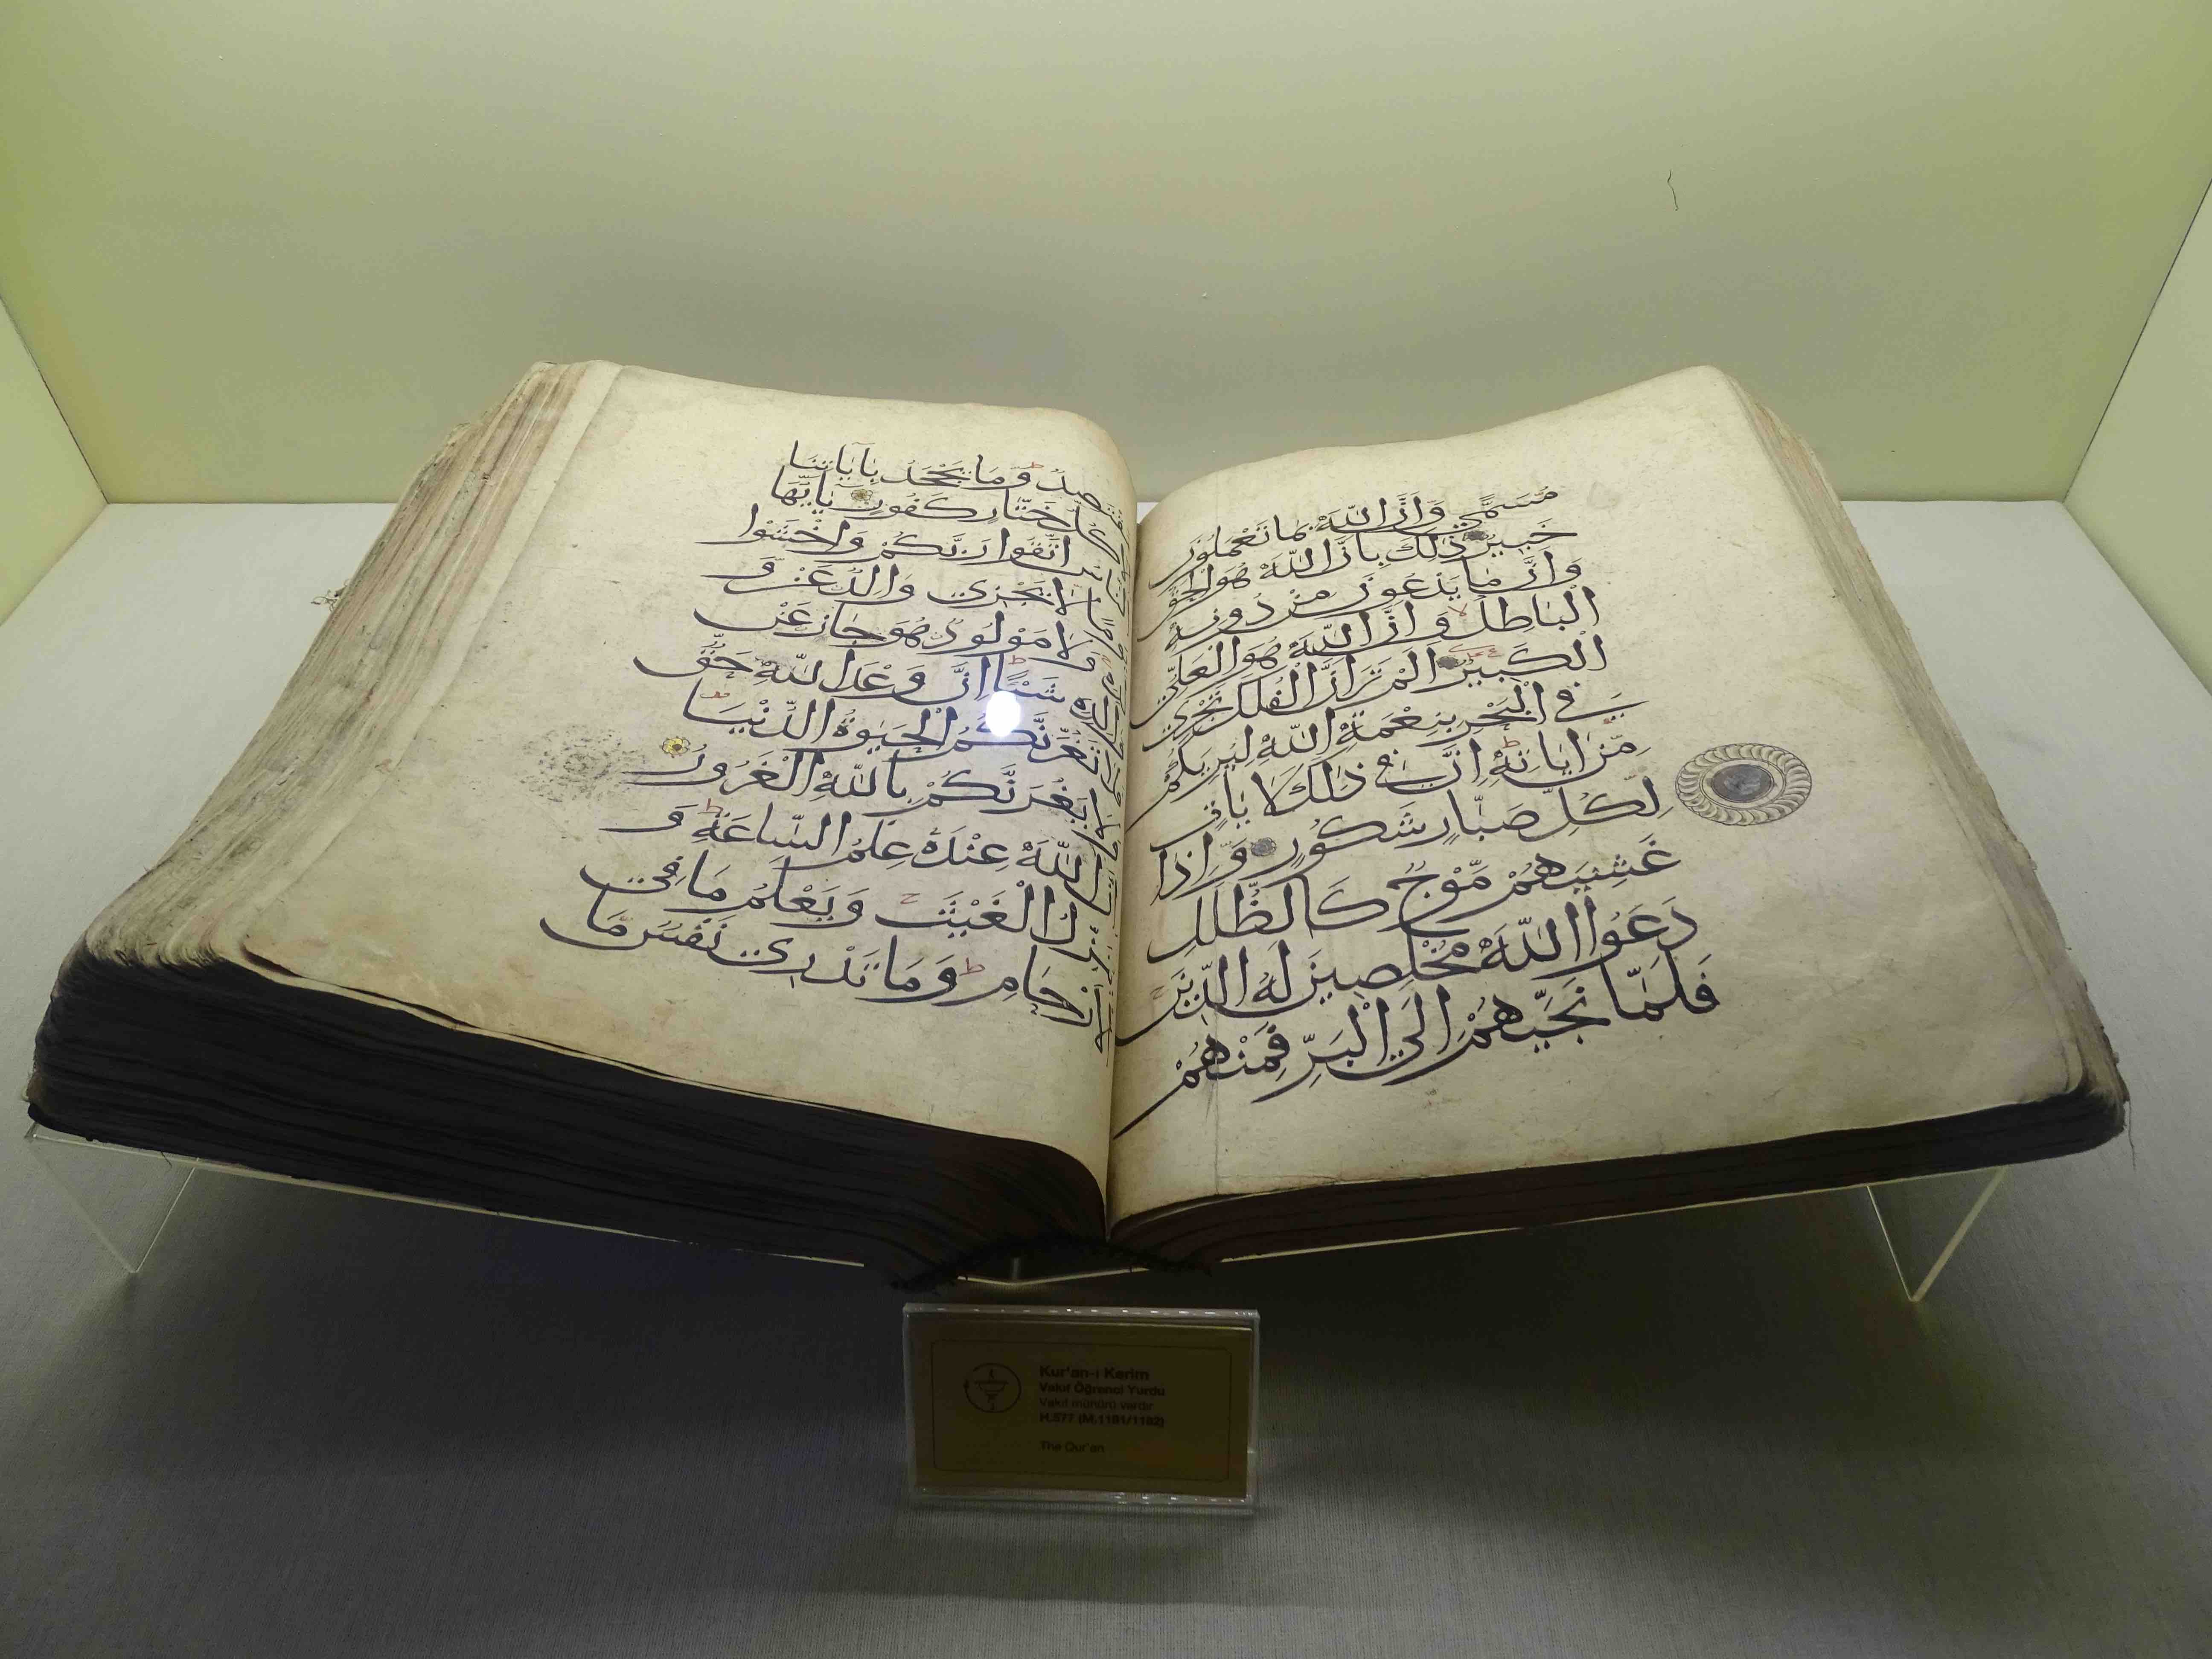 مُسَمًّى وَأَنَّ اللَّهَ بِمَا تَعْمَلُونَ
خَبِيرٌ ذَلِكَ بِأَنَّ اللَّهَ هُوَ الْحَقُّ
وَأَنَّ مَا يَدْعُونَ مِنْ دُونِهِ
الْبَاطِلُ وَأَنَّ اللَّهَ هُوَ الْعَلِيُّ
الْكَبِيرُ أَلَمْ تَرَ أَنَّ الْفُلْكَ تَجْرِي
فِي الْبَحْرِ بِنِعْمَةِ اللَّهِ لِيُرِيَكُمْ
مِّنْ اٰيَاتِهِ إِنَّ فِي ذَلِكَ لَاٰيَاتٍ
لِّكُلِّ صَبَّارٍ شَكُورٍ وَإِذَا
غَشِيَهُمْ مَّوْجٌ كَالظُّلَلِ
دَعَوُا اللَّهَ مُخْلِصِينَ لَهُ الدِّينَ
فَلَمَّا نَجَّيهُمْ إِلَى الْبَرِّ فَمِنْهُمْ
وَمَا يَجْحَدُ بِاٰيَاتِنَا
خَتَّارٍ كَفُورٍ يَا أَيُّهَا
اتَّقُوا رَبَّكُمْ وَاخْشَوْا
لَا يَجْزِي وَالِدٌ عَنْ وَ
لَا مَوْلُودٌ هُوَ جَازٍ عَنْ
شَيْئًا إِنَّ وَعْدَ اللَّهِ حَقٌّ
تَغُرَّنَّكُمُ الْحَيٰوةُ الدُّنْيَا
يَغُرَّنَّكُمْ بِاللَّهِ الْغَرُورُ
اللَّهَ عِنْدَهُ عِلْمُ السَّاعَةِ وَ
الْغَيْثَ وَيَعْلَمُ مَا فِي
وَمَا تَدْرِي نَفْسٌ مَّا
Kur'an-ı Kerim
Vakıf Öğrenci Yurdu
Vakıf mühürü vardır
H.577 (M.1181/1182)
The Qur'an